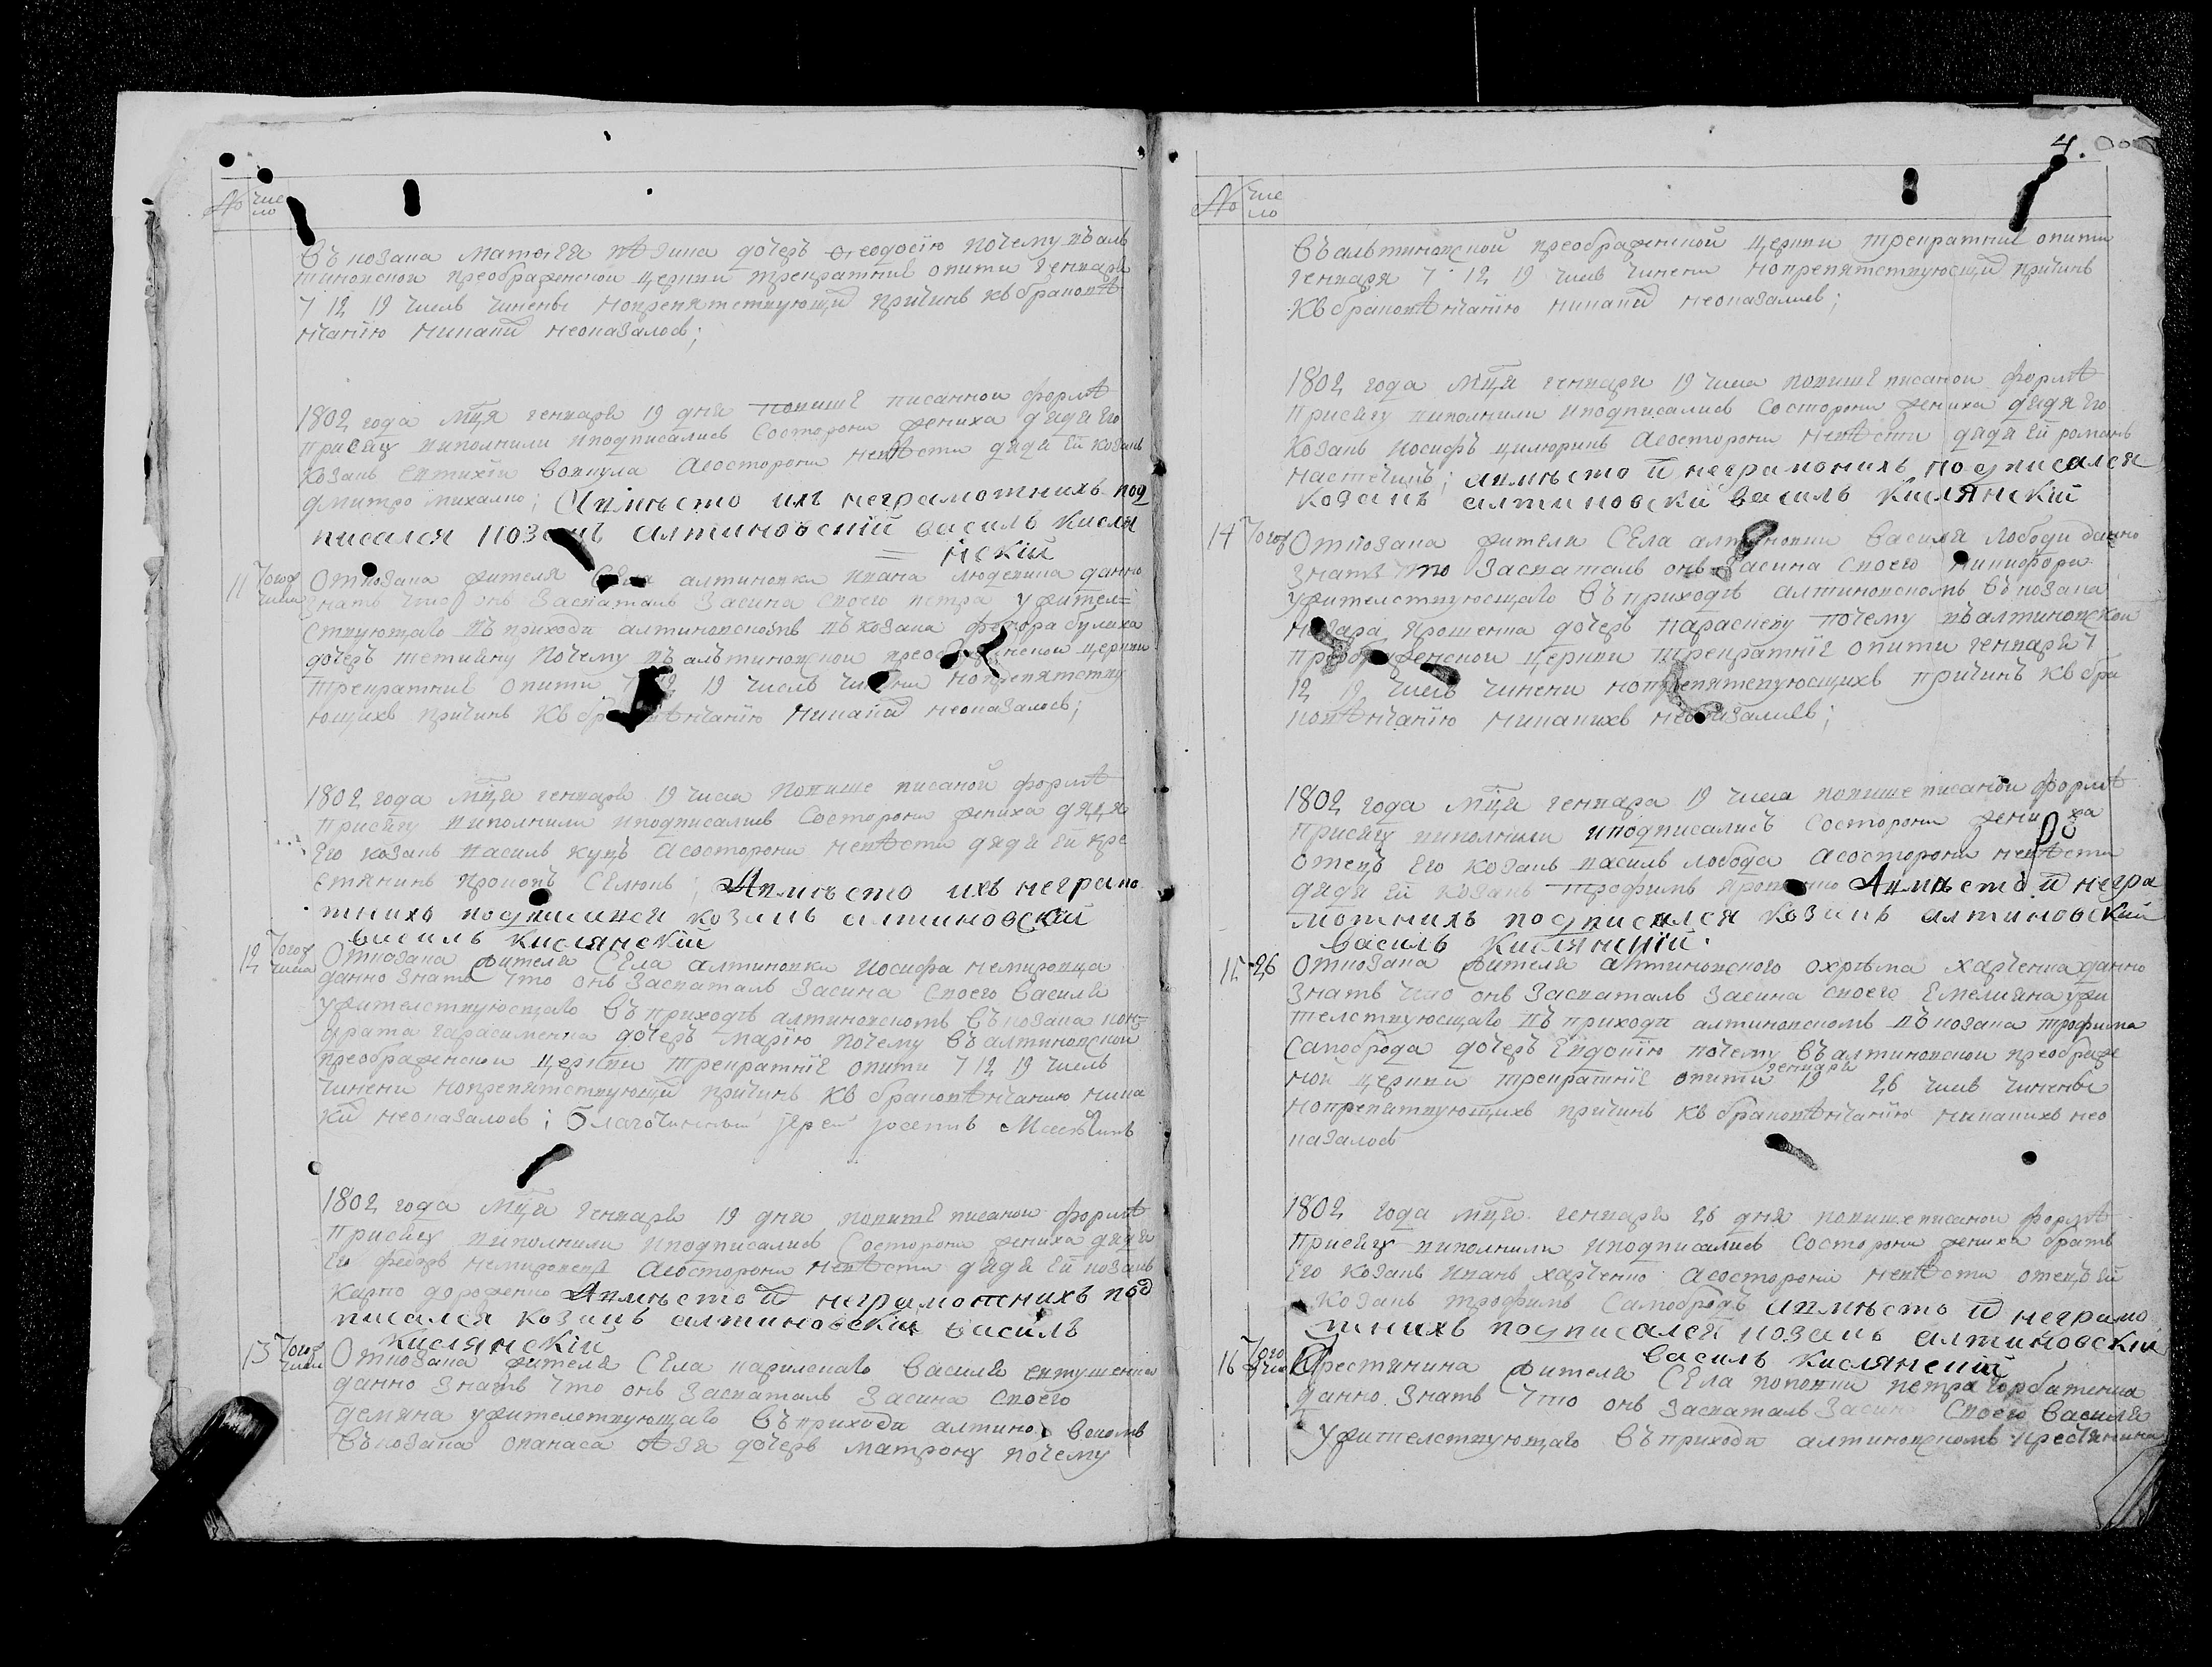 № Число
въ козака матѳея язика дочеръ ѳеодосію почему въ аль
тиновской преображенской церкви трекратніе опити генваря
7 12 19 числъ чинены нопрепятствующихъ причинъ къ браковѣ
нчанію никакихъ неоказалось;
1802 года мца генваря 19 дня повише писанной формѣ
присягу виполнили иподписались Состорони жениха дядя его
козакъ Евтихій вовкула Асосторони невѣсти дядя ей козакъ
дмитро михалко; Авмѣсто ихъ неграмотнихъ под
писался козакъ алтиновскій василь кисля
= нскій
11 Тогож числа Откозака жителя Села алтиновки ивана данно
знать что онъ Засваталъ Засина Своего петра ужител=
ствующаго въ приходи алтиновскомъ въ козака федора булиха
дочеръ тетияну почему въ альтиновской преображенской церкви
трекратніе опити 7 12 19 числъ чинени нопрепятству
ющихъ причинъ къ браковѣнчанію никакихъ неоказалось;
1802 года мца генваря 19 числа повише писаной формѣ
присягу виполнили иподписались Состорони жениха дядя
Его козакъ василь куцъ Асосторони невѣсти дядя ей кре
стянинъ прокопъ Селюкъ; Авмѣсто ихъ неграмо
тнихъ подписался козакъ алтиновскій
василь кислянскій
12 Тогож числа Откозака жителя Села алтиновки иосифа немировца
данно знать что онъ Засваталъ Засина Своего Василя
ужителствующаго въ приходѣ алтиновскомъ въ козака кон=
драта гарасименка дочеръ марію почему въ алтиновской
преображенской церкви трекратніе опити 7 12 19 числъ
чинени нопрепятствующихъ причинъ къ браковѣнчанію ника
кихъ неоказалось; Благочинный Іерей Іосифъ
1802 года мца генваря 19 дня повише писаной формѣ
присягу виполнили иподписались Состорони жениха дядя
Его федоръ Асосторони невѣсти дядя ей козакъ
карпо дорошенко Авмѣсто ихъ неграмотнихъ под
писался козакъ алтиновскій василь
кислянскій
13 Тогож числа Откозака жителя Села Василя евтушенка
данно знать что онъ Засваталъ Засина Своего
демяна ужителствующаго въ приходи алтиновскомъ
въ козака опанаса дочеръ матрону почему
4.
№ Число
въ альтиновской преображенской церкви трекратніе опити
генваря 7 12 19 числъ чинени нопрепятствующихъ причинъ
къ браковѣнчанію никакихъ неоказалось;
1802 года мца генваря 19 числа повише писаной формѣ
присягу виполнили иподписались Состорони жениха дядя его
козакъ иосифъ цилюрикъ Асосторони невѣсти дядя ей романъ
; Авмѣсто ихъ неграмонихъ подписался
козакъ алтиновски василь кислянскій
14 Тогож Откозака жителя Села алтиновки василя лободи данно
знать что Засваталъ онъ Засина Своего никифора
ужителствующаго въ приходѣ алтиновскомъ въ козака
назара прошенка дочеръ параскеву почему въ алтиновской
преображенской церкви трекратніе опити генваря 7
12 19 числъ чинени нопрепятствующихъ причинъ къ бра
ковѣнчанію никакихъ неоказалось;
1802 года мца генвара 19 числа повише писаной формѣ
присягу виполнили иподписались состорони жениха
отецъ его козакъ василь лобода Асосторони невѣсти
дядя ей козакъ трофимъ Авмѣсто ихъ негра
мотнихъ подписался козакъ алтиновскій
василь кислянскій.
15 26 Откозака жителя алтиновского охрѣма харченка данно
знать что онъ Засваталъ Засина Своего Емелияна ужи
телствующаго въ приходи алтиновскомъ въ козака трофима
Самоброда дочеръ Евдокію почему въ алтиновской преображе
ной церкви трекратніе опити генваря 19 26 числъ чинены
нопрепятвующихъ причинъ къ браковѣнчанію никакихъ нео
казалось
1802 года мца генваря 26 дня повише писаной формѣ
присягу виполнили иподписались Состорони жениха братъ
Его козакъ иванъ харченко Асосторони невѣсти отецъ ей
козакъ трофимъ Самобродъ Авмѣсто ихъ неграмо
тнихъ подписался козакъ алтиновскій
василь кислянскій
16 Того числа Крестянина жителя Села поповки петра горбатенка
данно знать что онъ Засваталъ Засина Своего василя
ужителствующаго въ приходи алтиновскомъ крестянина